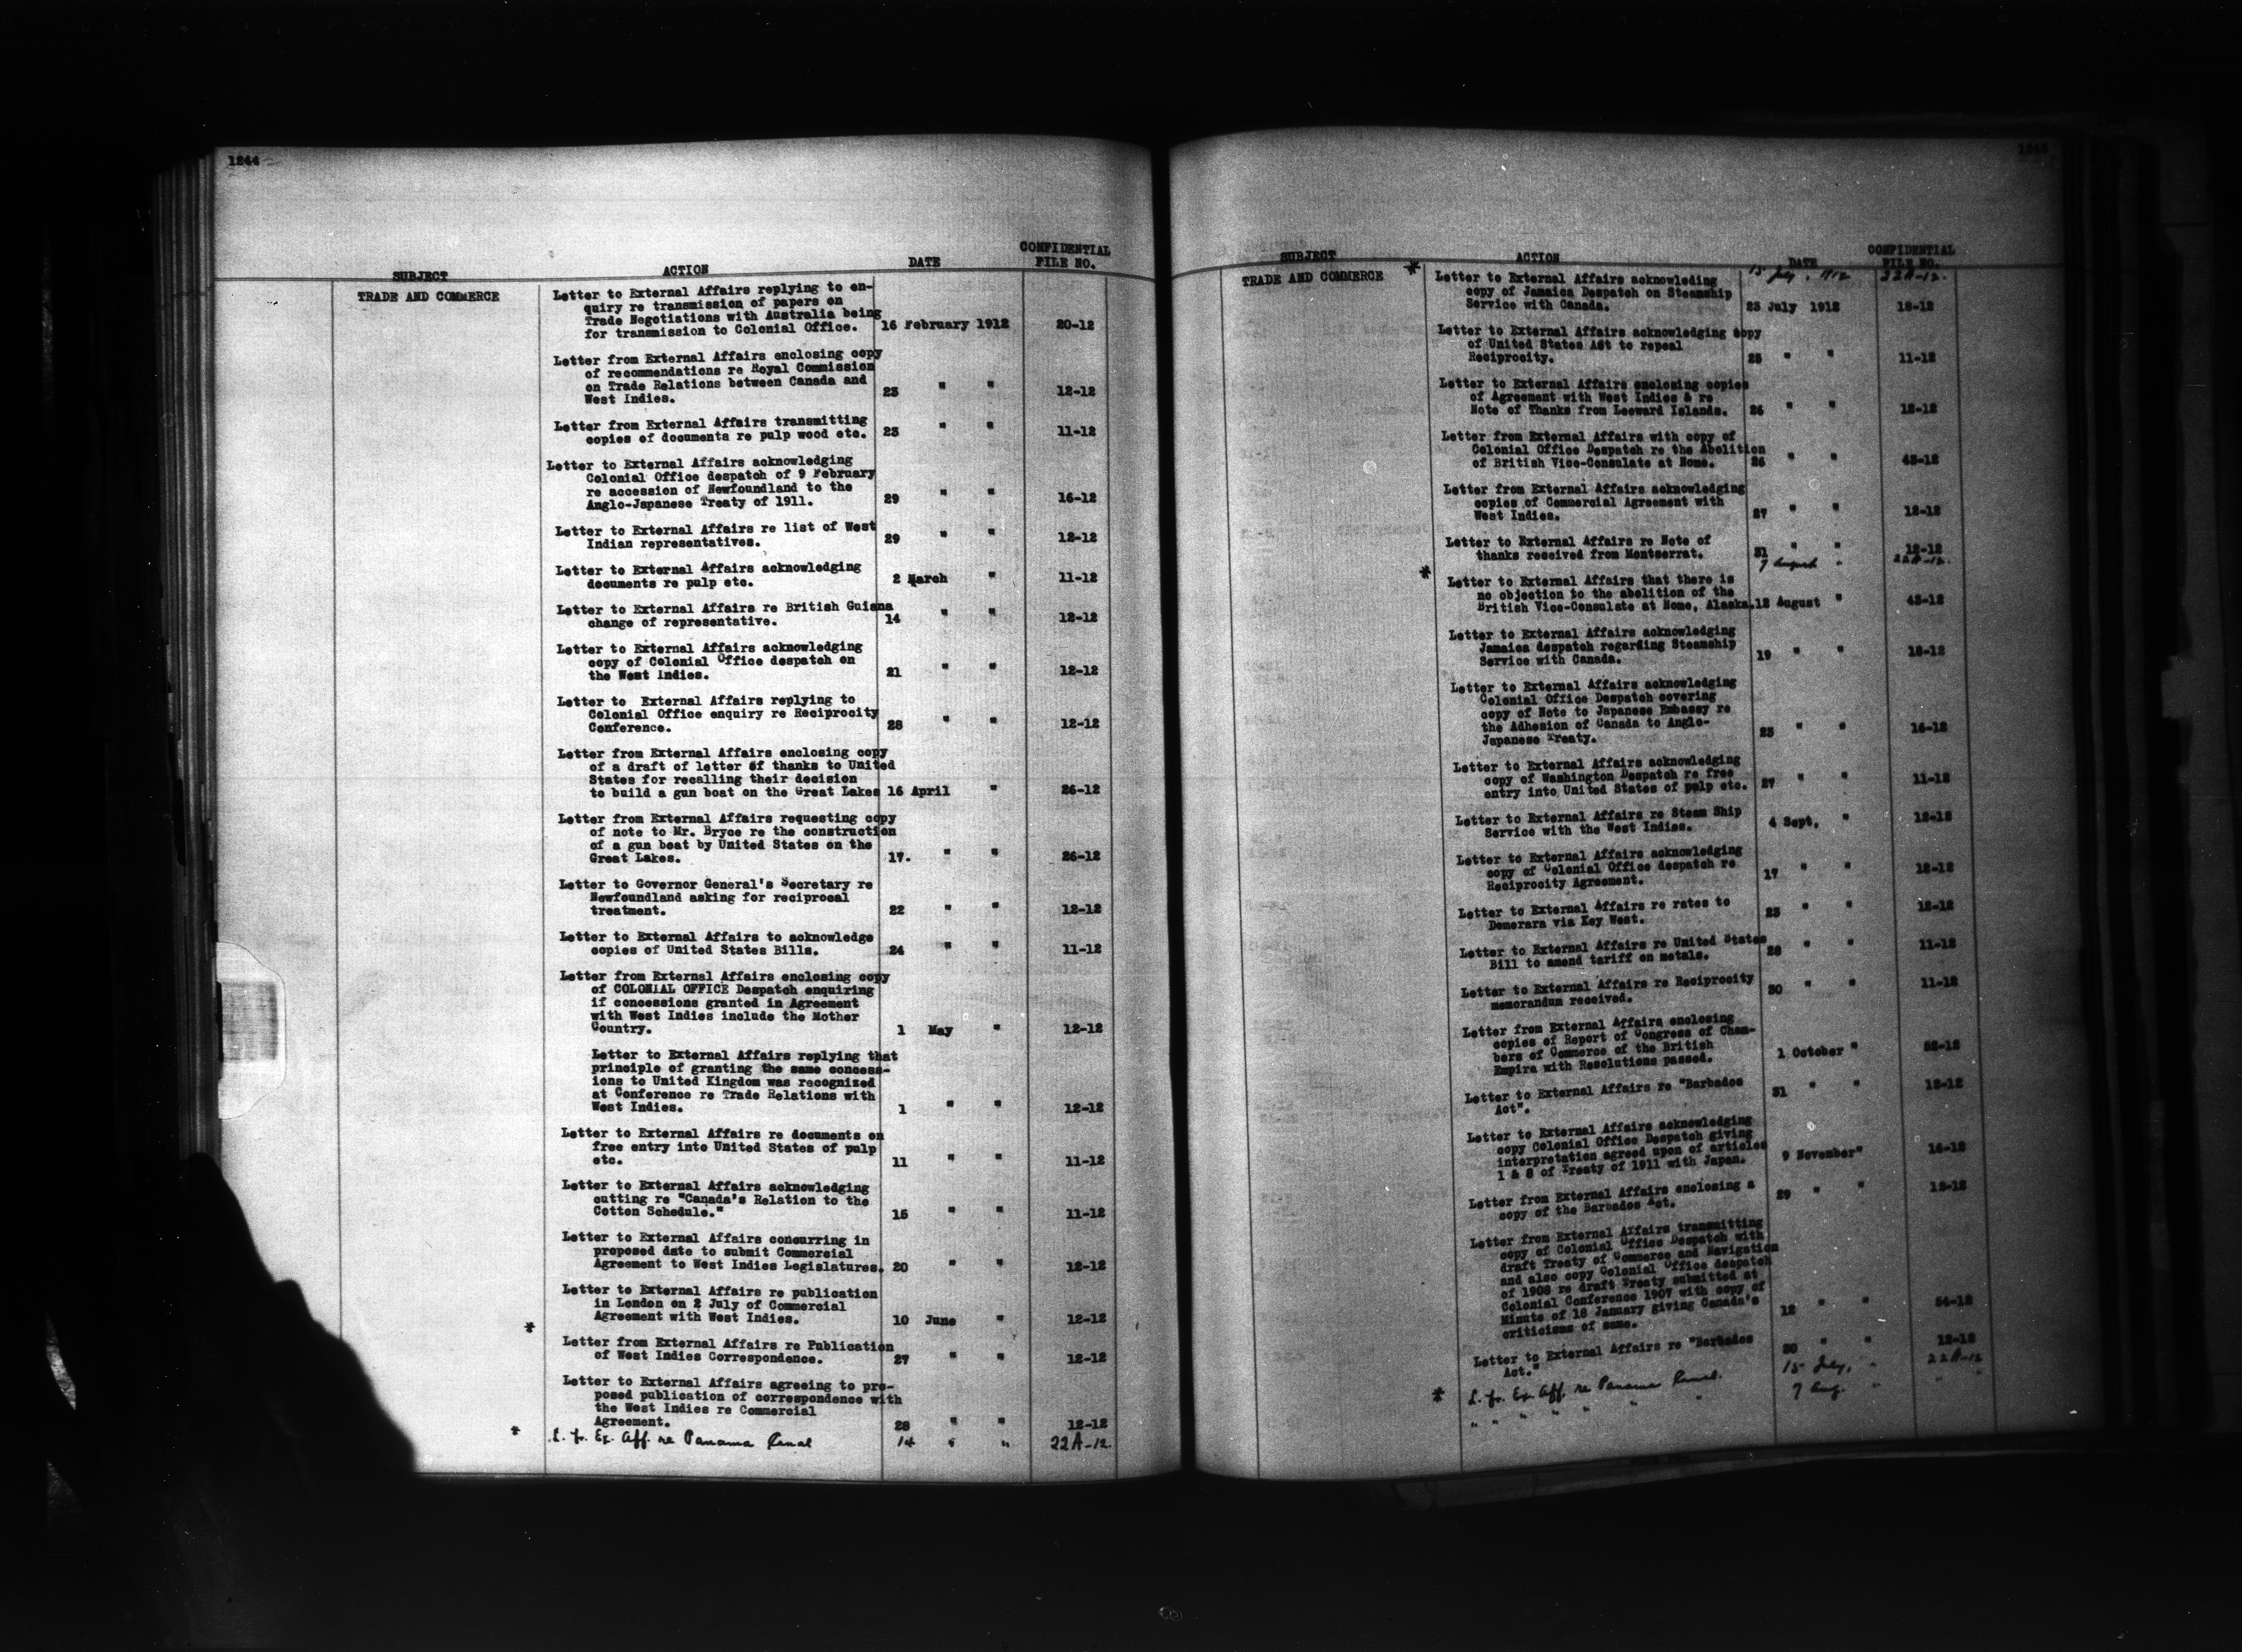 1244
SUBJECT ACTION DATE CONFIDENTIAL FILE NO.
TRADE AND COMMERCE
Letter to External Affairs replying to en-
quiry re transmission of papers on
Trade Negotiations with Australia being
for transmission to Colonial Office. 16 February 1912 20-12
Letter from External Affairs enclosing copy
of recommendations re Royal Commission
on Trade Relations between Canada and
West Indies. 23 " " 12-12
Letter from External Affairs transmitting
copies of documents re pulp wood etc. 23 " " 11-12
Letter to External Affairs acknowledging
Colonial Office despatch of 9 February
re accession of Newfoundland to the
Anglo-Japanese Treaty of 1911. 29 " " 16-12
Letter to External Affairs re list of West
Indian representatives. 29 " " 12-12
Letter to External Affairs acknowledging
documents re pulp etc. 2 March " 11-12
Letter to External Affairs re British Guiana
change of representative. 14 " " 12-12
Letter to External Affairs acknowledging
copy of Colonial Office despatch on
the West Indies. 21 " " 12-12
Letter to External Affairs replying to
Colonial Office enquiry re Reciprocity
Conference. 28 " " 12-12
Letter from External Affairs enclosing copy
of a draft of letter of thanks to United
States for recalling their decision
to build a gun boat on the Great Lakes 16 April " 26-12
Letter from External Affairs requesting copy
of note to Mr. Bryce re the construction
of a gun boat by United States on the
Great Lakes. 17. " " 26-12
Letter to Governor General's Secretary re
Newfoundland asking for reciprocal
treatment. 22 " " 12-12
Letter to External Affairs to acknowledge
copies of United States Bills. 24 " " 11-12
Letter from External Affairs enclosing copy
of COLONIAL OFFICE Despatch enquiring
if concessions granted in Agreement
with West Indies include the Mother
Country. 1 May " 12-12
Letter to External Affairs replying that
principle of granting the same concess-
ions to United Kingdom was recognized
at Conference re Trade Relations with
West Indies. 1 " " 12-12
Letter to External Affairs re documents on
free entry into United States of pulp
etc. 11 " " 11-12
Letter to External Affairs acknowledging
cutting re "Canada's Relation to the
Cotton Schedule." 15 " " 11-12
Letter to External Affairs concurring in
proposed date to submit Commercial
Agreement to West Indies Legislatures. 20 " " 12-12
Letter to External Affairs re publication
in London on 2 July of Commercial
Agreement with West Indies. 10 June " 12-12
*
Letter from External Affairs re Publication
of West Indies Correspondence. 27 " " 12-12
Letter to External Affairs agreeing to pro-
posed publication of correspondence with
the West Indies re Commercial
Agreement. 28 " " 12-12
* L. fr. Ex. Aff. re Panama Canal 14 " " 22A-12.
1245
SUBJECT ACTION DATE CONFIDENTIAL FILE NO.
TRADE AND COMMERCE * 15 July, 1912 22A-12.
Letter to External Affairs acknowleding
copy of Jamaica Despatch on Steamship
Service with Canada. 23 July 1912 12-12
Letter to External Affairs acknowledging copy
of United States Act to repeal
Reciprocity. 25 " " 11-12
Letter to External Affairs enclosing copies
of Agreement with West Indies & re
Note of Thanks from Leeward Islands. 26 " " 12-12
Letter from External Affairs with copy of
Colonial Office Despatch re the Abolition
of British Vice-Consulate at Nome. 26 " " 43-12
Letter from External Affairs acknowledging
copies of Commercial Agreement with
West Indies. 27 " " 12-12
Letter to External Affairs re Note of
thanks received from Montserrat. 31 " " 12-12
* 7 August " 22A-12.
Letter to External Affairs that there is
no objection to the abolition of the
British Vice-Consulate at Nome, Alaska. 12 August " 43-12
Letter to External Affairs acknowledging
Jamaica despatch regarding Steamship
Service with Canada. 19 " " 12-12
Letter to External Affairs acknowledging
Colonial Office Despatch covering
copy of Note to Japanese Embassy re
the Adhesion of Canada to Anglo-
Japanese Treaty. 23 " " 16-12
Letter to External Affairs acknowledging
copy of Washington Despatch re free
entry into United States of pulp etc. 27 " " 11-12
Letter to External Affairs re Steam Ship
Service with the West Indies. 4 Sept. " 12-12
Letter to External Affairs acknowledging
copy of Colonial Office despatch re
Reciprocity Agreement. 17 " " 12-12
Letter to External Affairs re rates to
Demerara via Key West. 23 " " 12-12
Letter to External Affairs re United States
Bill to amend tariff on metals. 28 " " 11-12
Letter to External Affairs re Reciprocity
memorandum received. 30 " " 11-12
Letter from External Affairs enclosing
copies of Report of Congress of Cham-
bers of Commerce of the British
Empire with Resolutions passed. 1 October " 52-12
Letter to External Affairs re "Barbados
Act". 31 " " 12-12
Letter to External Affairs acknowledging
copy Colonial Office Despatch giving
interpretation agreed upon of articles
1 & 8 of Treaty of 1911 with Japan. 9 November " 16-12
Letter from External Affairs enclosing a
copy of the Barbados Act. 29 " " 12-12
Letter from External Affairs transmitting
copy of Colonial Office Despatch with
draft Treaty of Commerce and Navigation
and also copy Colonial Office despatch
of 1908 re draft Treaty submitted at
Colonial Conference 1907 with copy of
Minute of 18 January giving Canada's
criticisms of same. 12 " " 54-12
Letter to External Affairs re "Barbados
Act." 30 " " 12-12
* L. fr. Ex. Aff. re Panama Canal. 15 July, " 22A-12
" " " " " " " 7 Aug. " " "